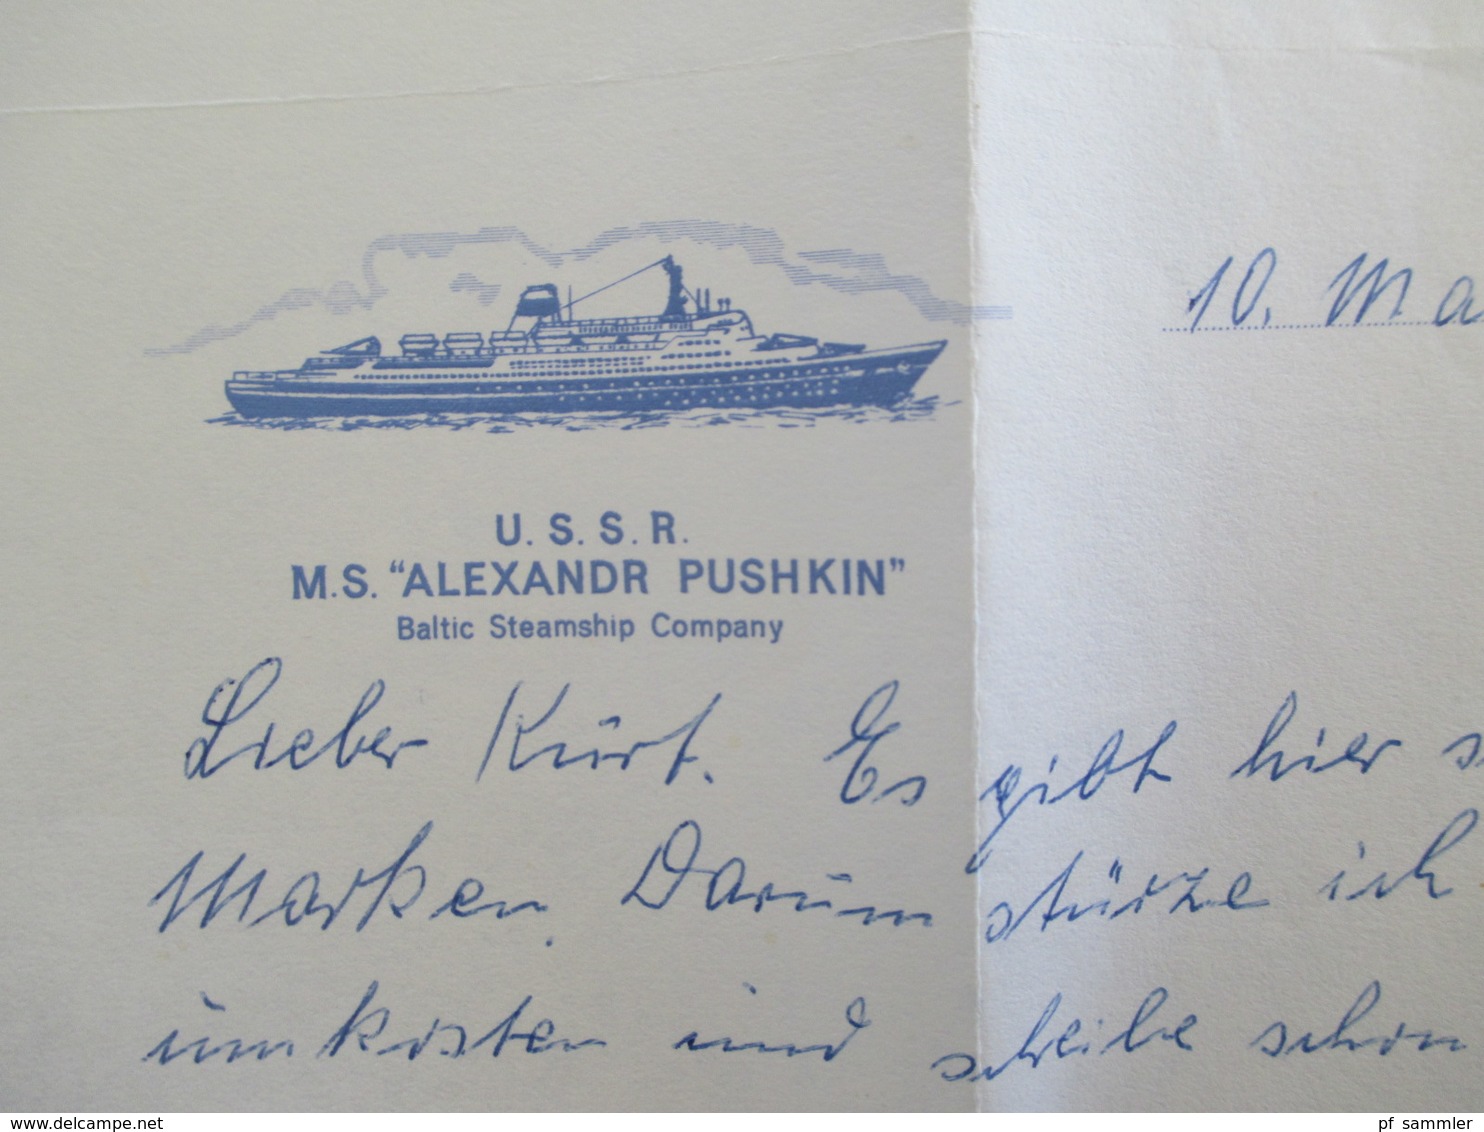 10. Ma
U.S.S.R.
M.S. “ALEXANDR PUSHKIN”
Baltic Steamship Company
Lieber Kurt. Es gibt hier s
Marken. Darum stürze ich
umkosten und schreibe schon
www.delcampe.net
pf_sammler